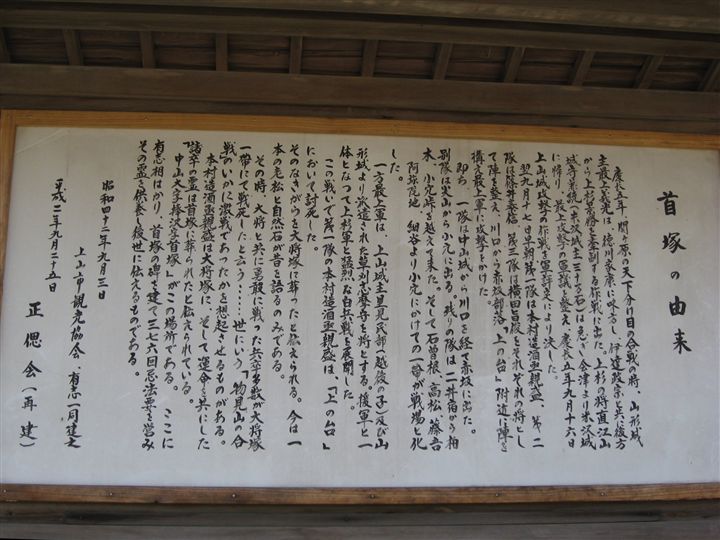 首塚の由来
慶長五年、関ヶ原の天下分け目の合戦の時、山形城
主最上義光は、徳川家康に呼応し、伊達政宗と共に後方
から上杉景勝を牽制する作戦に出た。上杉の将直江山
城守兼続（米沢城主三十万石）は急ぎ会津より米沢城
に帰り、最上攻撃の軍議を整え、慶長五年九月十六日
上山城攻撃の作戦を軍評定により決した。
翌九月十七日早朝、第一隊は本村造酒亟親盛、第二
隊は篠井泰信、第三隊は横田旨俊をそれぞれの将とし
て陣を整え、川口から赤坂部落「上の台」附近に陣を
構え最上軍に攻撃をかけた。
即ち、一隊は中山城から川口を経て赤坂に出た。
別隊は実山から小穴に出る。残りの隊は二井宿から柏
木、小穴峠を越えて来た。そして石曽根、高松、藤吾
阿弥陀地 細谷より小穴にかけての一帯が戦場と化
した。
一方最上軍は、上山城主里見民部（越後の子）及び山
形城より派遣された草刈志摩守を将とする。援軍と一
体となつて上杉軍と猛烈な白兵戦を展開した。
この戦いで第一隊の本村造酒亟親盛は、「上の台」
において討死した。
そのなきがらを大将塚に葬ったと伝えられる。今は一
本の老松と自然石が昔を語るのみである。
その時、大将と共に勇敢に戦った兵卒多数が大将塚
一帯にて戦死したと云う・・・・世にいう「物見山の合
戦」のいかに激戦であったかを想起させるものがある。
本村造酒亟親盛は大将塚に、そして運命を共にした
諸卒の霊は首塚に葬られたと伝えられている。
中山大字捨次壇「首塚」がこの場所である。ここに
有志相はかり、首塚の碑を建て三七六回忌法要を営み
その霊を供養し後世に伝えるものである。
昭和四十二年九月三日
上山市観光協会、有志一同建之
平成二年九月二十五日
正偲会（再建）